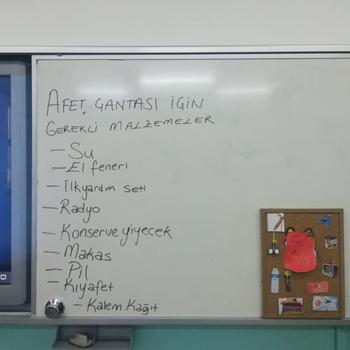 AFET ÇANTASI İÇİN
GEREKLİ MALZEMELER:
- Su
- El feneri
- İlkyardım seti
- Radyo
- Konserve yiyecek
- Makas
- Pil
- Kıyafet
- Kalem Kağıt